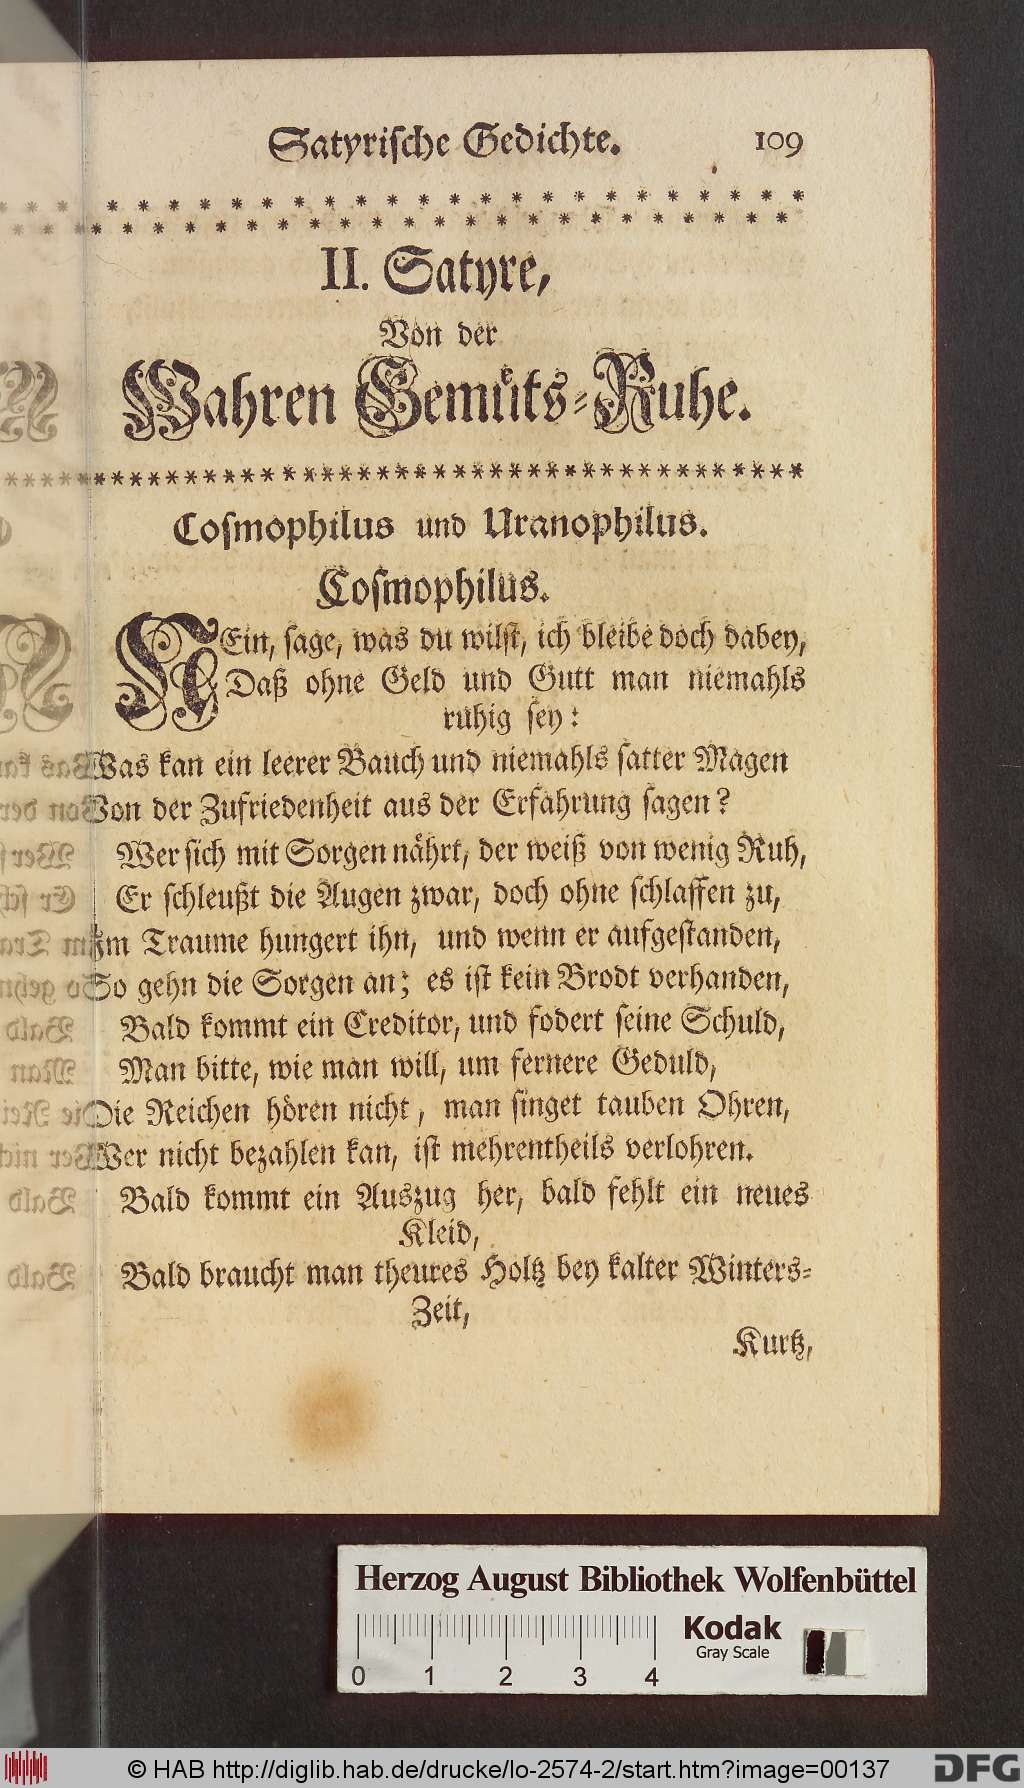 Satyriſche Gedichte. 109
II. Satyre,
Von der
Wahren Gemuͤts-Ruhe.
Coſmophilus und Uranophilus.
Coſmophilus.
NEin, ſage, was du wilſt, ich bleibe doch dabey,
Daß ohne Geld und Gutt man niemahls
ruhig ſey:
Was kan ein leerer Bauch und niemahls ſatter Magen
Von der Zufriedenheit aus der Erfahrung ſagen?
Wer ſich mit Sorgen naͤhrt, der weiß von wenig Ruh,
Er ſchleußt die Augen zwar, doch ohne ſchlaffen zu,
Im Traume hungert ihn, und wenn er aufgeſtanden,
So gehn die Sorgen an; es iſt kein Brodt verhanden,
Bald kommt ein Creditor, und fodert ſeine Schuld,
Man bitte, wie man will, um fernere Geduld,
Die Reichen hoͤren nicht, man ſinget tauben Ohren,
Wer nicht bezahlen kan, iſt mehrentheils verlohren.
Bald kommt ein Auszug her, bald fehlt ein neues
Kleid,
Bald braucht man theures Holtz bey kalter Winters-
Zeit,
Kurtz,
Herzog August Bibliothek Wolfenbüttel
Kodak
Gray Scale
0 1 2 3 4
© HAB http://diglib.hab.de/drucke/lo-2574-2/start.htm?image=00137
DFG